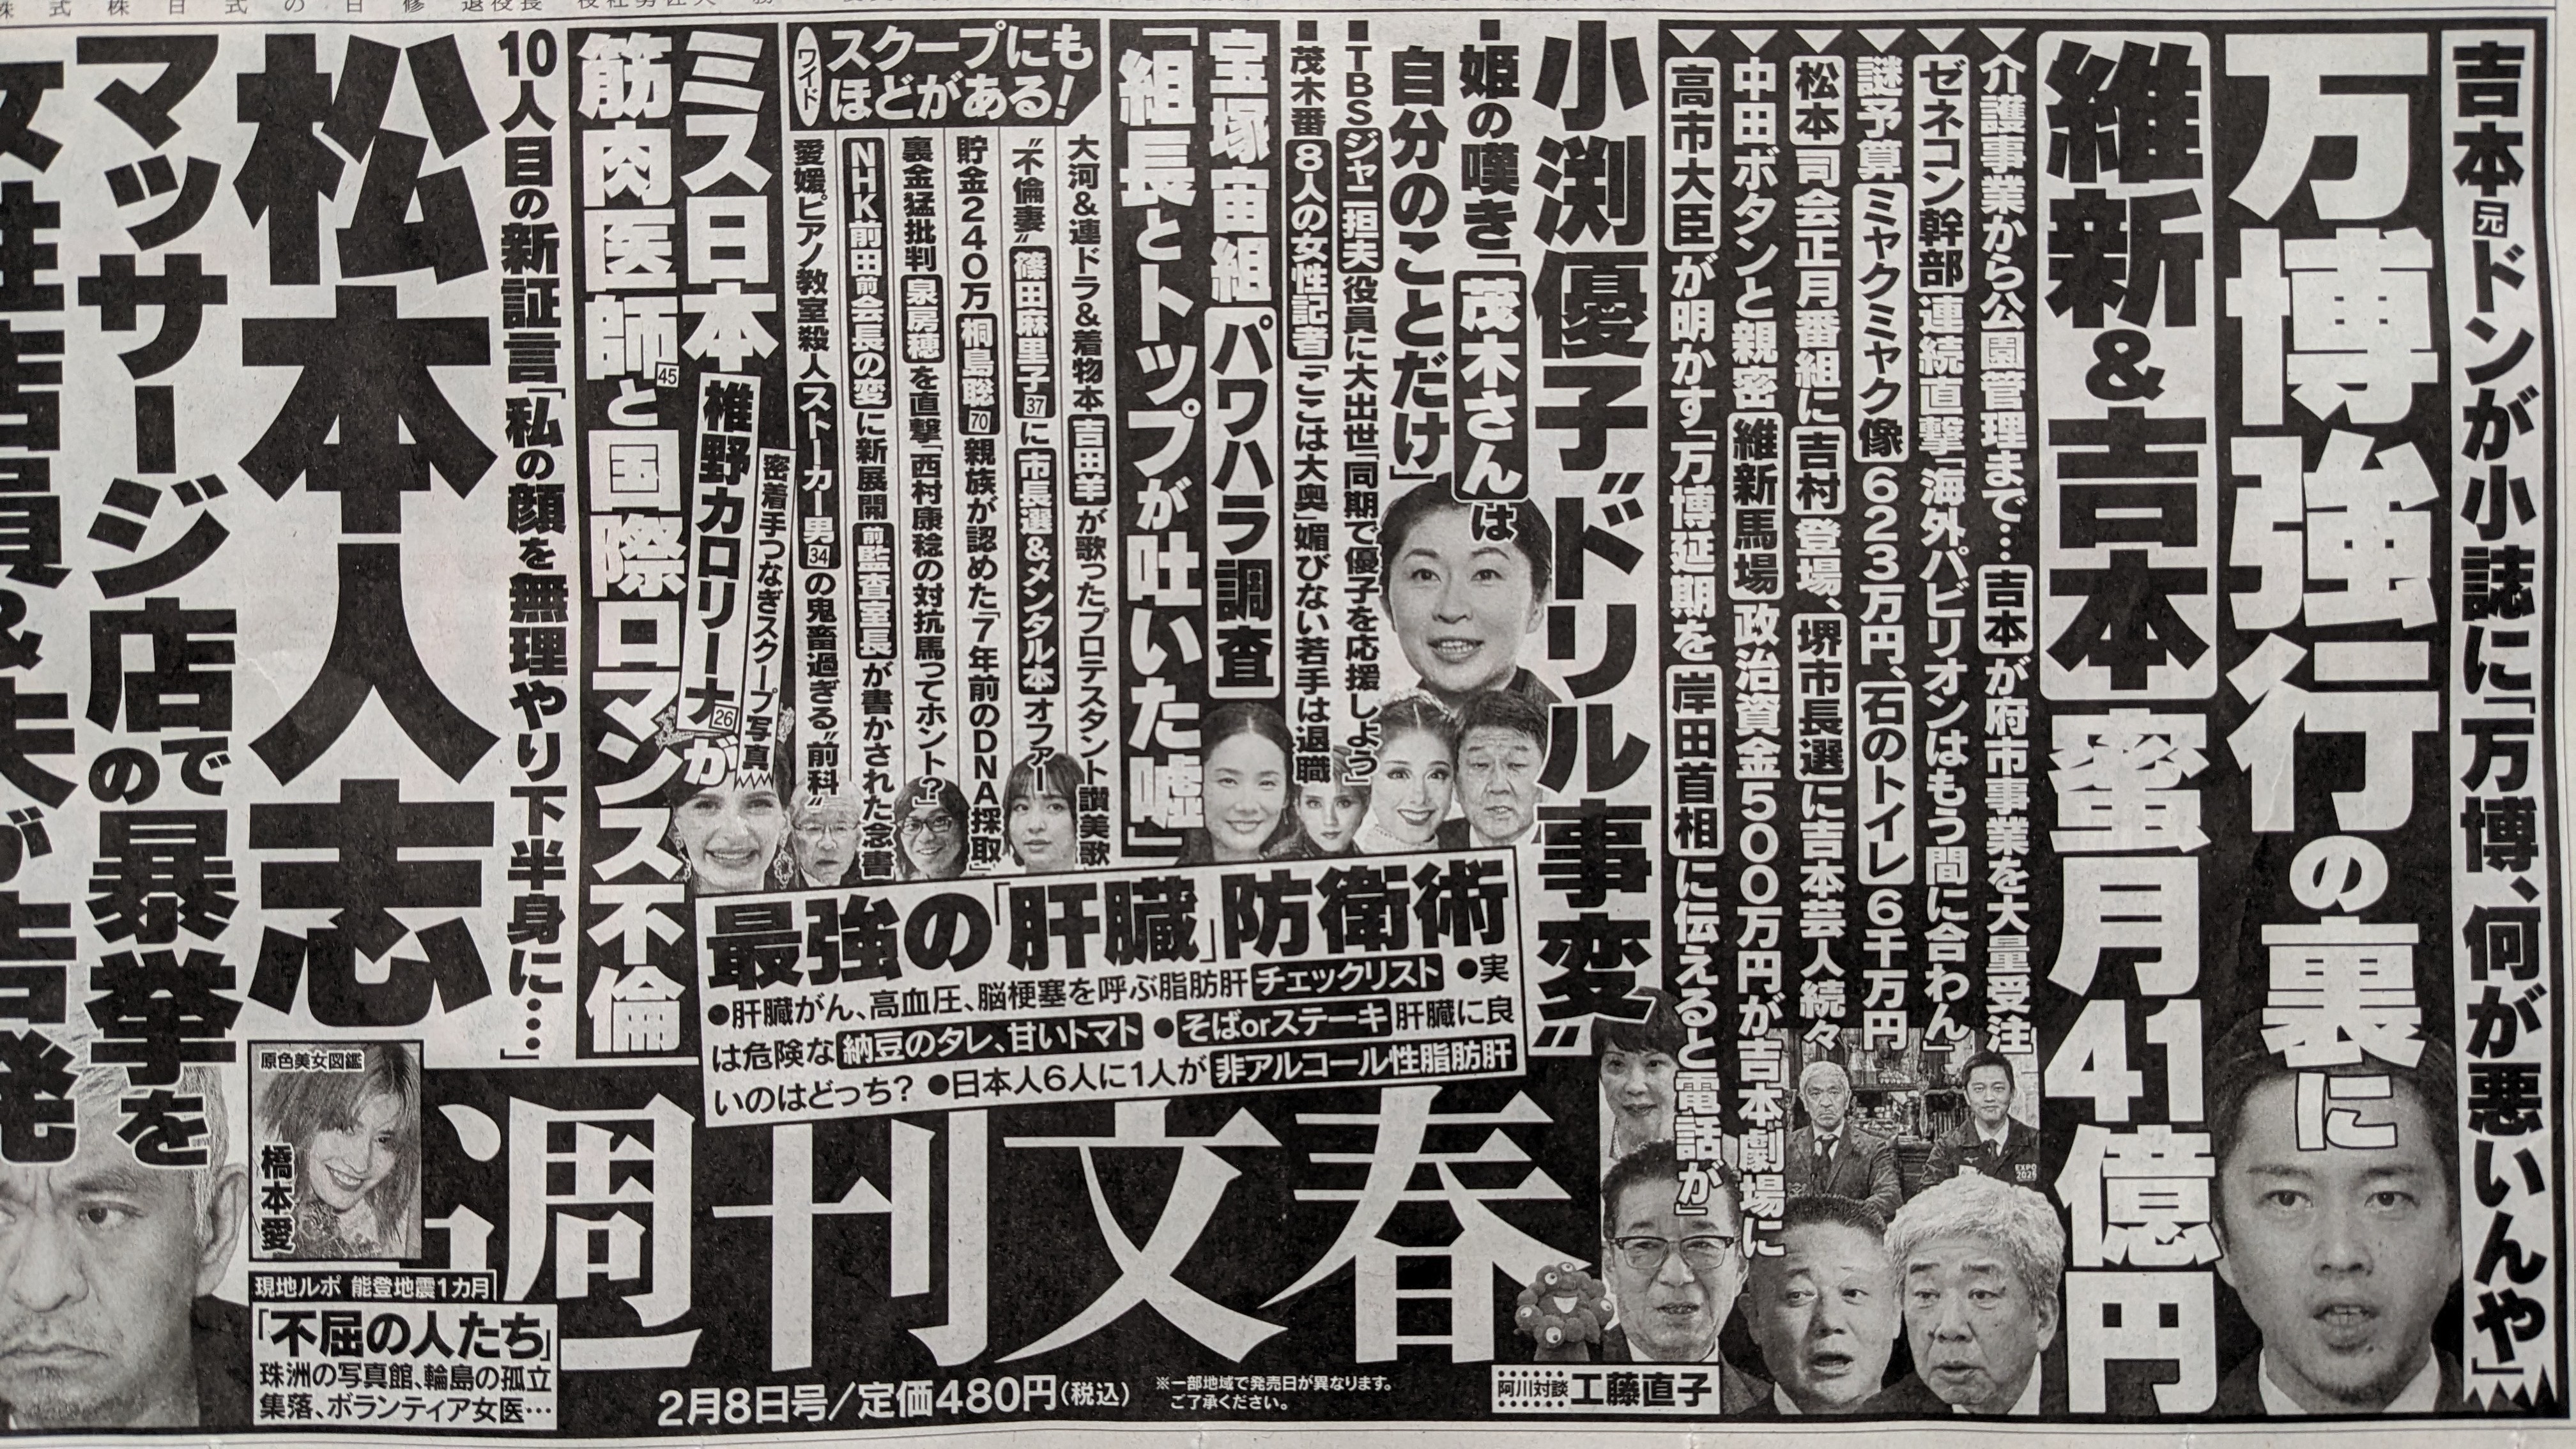 吉本元ドンが小誌に「万博、何が悪いんや」
万博強行の裏に
維新&吉本 蜜月41億円
介護事業から公園管理まで…吉本が府市事業を大量受注
ゼネコン幹部連続直撃「海外パビリオンはもう間に合わん」
謎予算ミャクミャク像623万円、石のトイレ6千万円
松本司会正月番組に吉村登場、堺市長選に吉本芸人続々
中田ボタンと親密維新馬場政治資金500万円が吉本劇場に
高市大臣が明かす「万博延期を岸田首相に伝えると電話が」
EXPO
2025
小渕優子“ドリル事変”
姫の嘆き「茂木さんは
自分のことだけ」
TBSジャニ担夫役員に大出世「同期で優子を応援しよう」
茂木番8人の女性記者「ここは大奥」媚びない若手は退職
宝塚宙組パワハラ調査
「組長とトップが吐いた嘘」
ワイド
スクープにも
ほどがある!
大河&連ドラ&着物本吉田羊が歌ったプロテスタント讃美歌
“不倫妻”篠田麻里子37に市長選&メンタル本オファー
貯金240万桐島聡70親族が認めた「7年前のDNA採取」
裏金猛批判泉房穂を直撃「西村康稔の対抗馬ってホント?」
NHK前田前会長の変に新展開前監査室長が書かされた念書
愛媛ピアノ教室殺人ストーカー男34の鬼畜過ぎる“前科”
ミス日本
椎野カロリーナ26が
密着手つなぎスクープ写真
筋肉医師45と国際ロマンス不倫
10人目の新証言「私の顔を無理やり下半身に…」
松本人志
マッサージ店での暴挙を
女性店員&夫が告発
最強の「肝臓」防衛術
●肝臓がん、高血圧、脳梗塞を呼ぶ脂肪肝チェックリスト ●実
は危険な納豆のタレ、甘いトマト ●そばorステーキ肝臓に良
いのはどっち? ●日本人6人に1人が非アルコール性脂肪肝
週刊文春
2月8日号/定価480円(税込)
※一部地域で発売日が異なります。
ご了承ください。
阿川対談 工藤直子
原色美女図鑑
橋本愛
現地ルポ 能登地震1カ月
「不屈の人たち」
珠洲の写真館、輪島の孤立
集落、ボランティア女医…